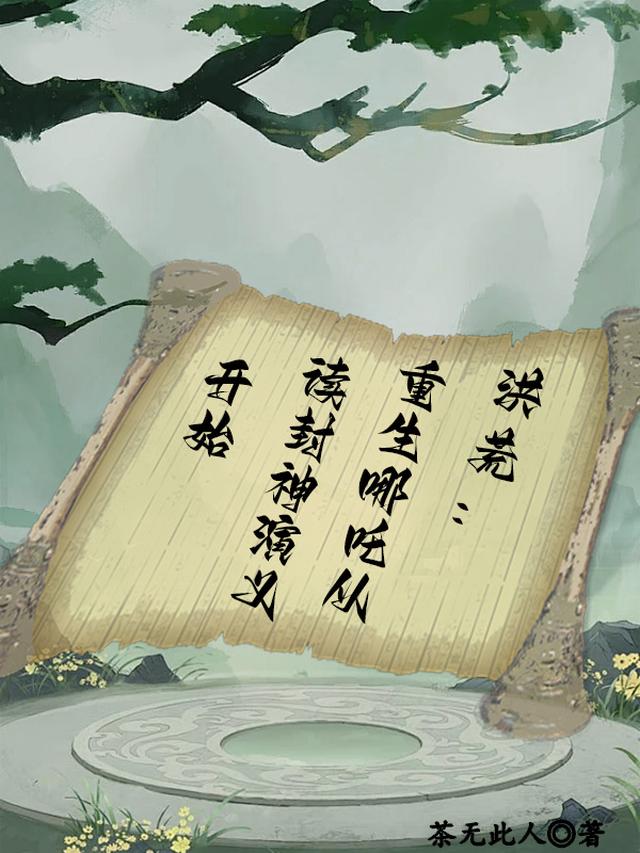 洪荒：
重生哪吒从
读封神演义
开始
茶无此人◎著